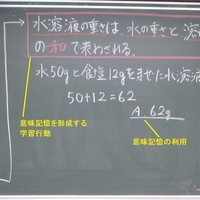 水溶液の重さは、水の重さと溶
の和で表わされる。
水50gと食塩12gをまぜた水溶液
50+12=62
A. 62g
意味記憶を形成する
学習行動
意味記憶の利用